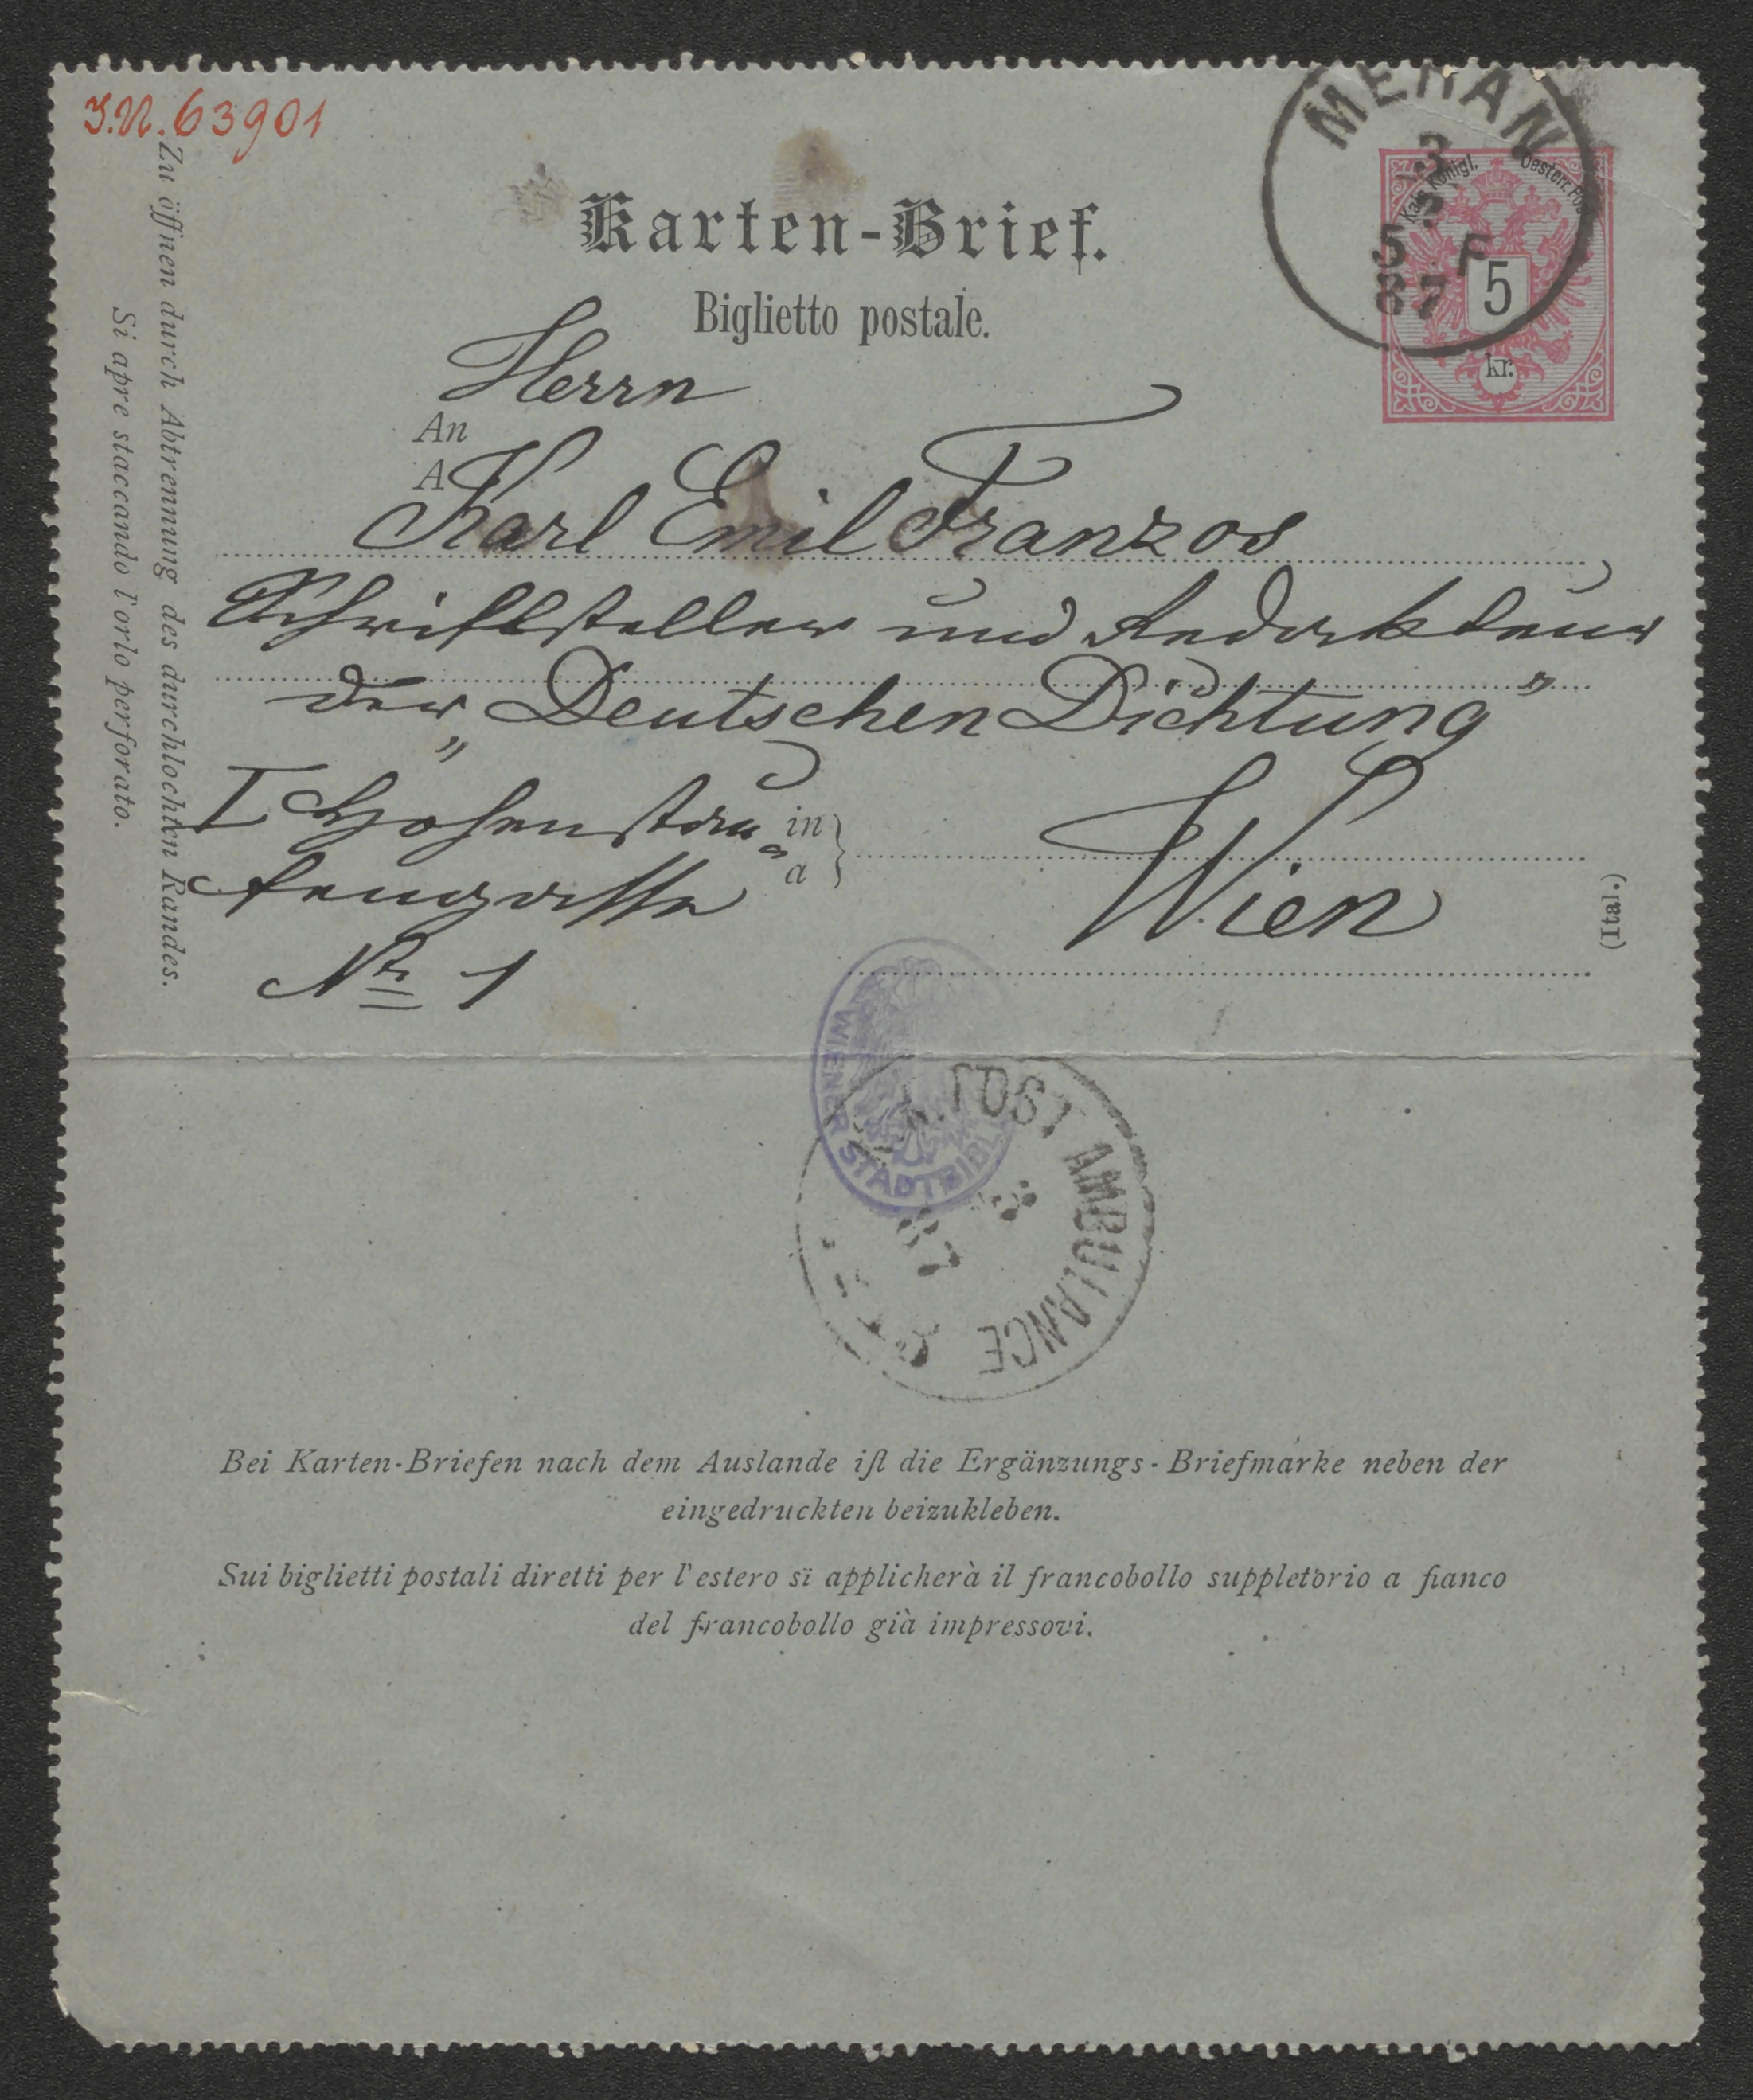 I.N. 63901
MERAN
3
5 F
87
Kais. Königl. Oesterr. Post
5
kr.
Karten-Brief.
Biglietto postale.
Herrn
An
A
Karl Emil Franzos
Schriftsteller und Redakteur
der „Deutschen Dichtung"
I Hohenstau-
fengasse
Nr. 1
in
a
Wien
(Ital.)
Zu öffnen durch Abtrennung des durchlochten Randes.
Si apre staccando l'orlo perforato.
WIENER STADTBIBL
POST AMBULANCE
87
Bei Karten-Briefen nach dem Auslande ist die Ergänzungs-Briefmarke neben der
eingedruckten beizukleben.
Sui biglietti postali diretti per l'estero si applicherà il francobollo suppletorio a fianco
del francobollo già impressovi.